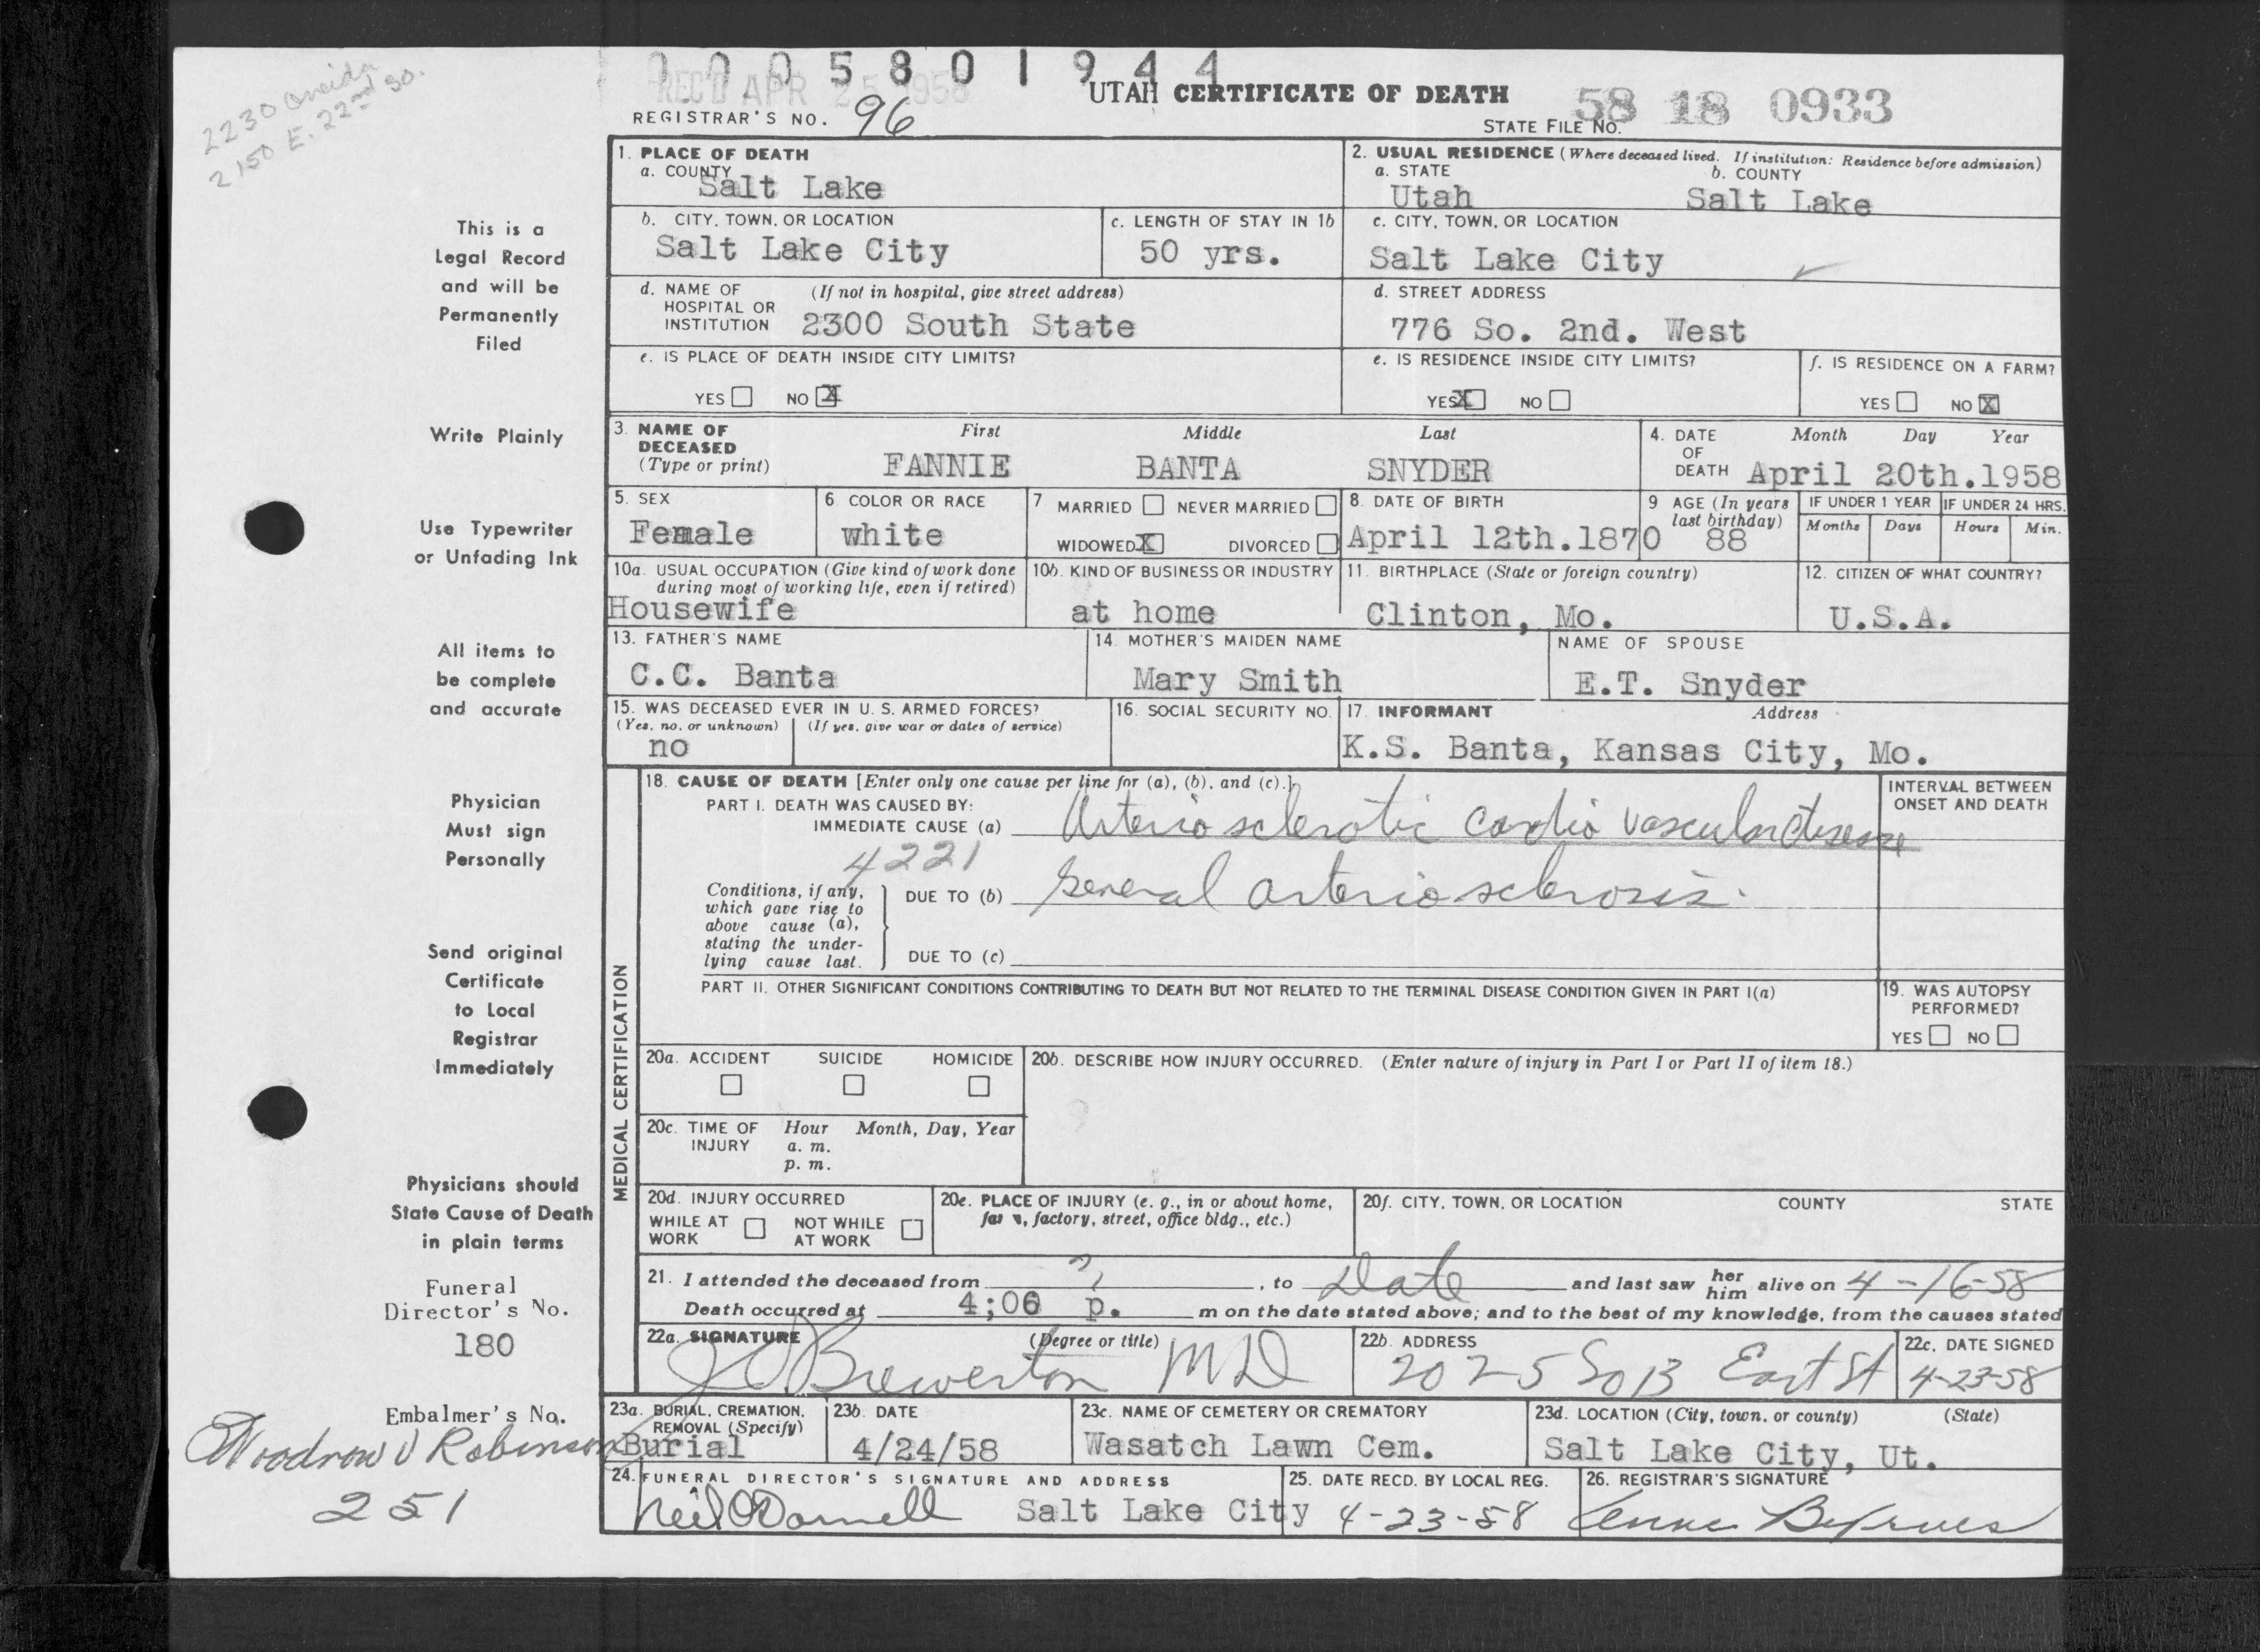 2230 Oneida
2150 E. 22nd So.
0005801944
REC'D APR 25 1958
UTAH CERTIFICATE OF DEATH
REGISTRAR'S NO. 96
STATE FILE NO. 58 18 0933
This is a
Legal Record
and will be
Permanently
Filed
Write Plainly
Use Typewriter
or Unfading Ink
All items to
be complete
and accurate
Physician
Must sign
Personally
Send original
Certificate
to Local
Registrar
Immediately
Physicians should
State Cause of Death
in plain terms
Funeral
Director's No.
180
Embalmer's No.
Woodrow V Robinson
251
1. PLACE OF DEATH
a. COUNTY
Salt Lake
2. USUAL RESIDENCE (Where deceased lived. If institution: Residence before admission)
a. STATE b. COUNTY
Utah Salt Lake
b. CITY, TOWN, OR LOCATION
Salt Lake City
c. LENGTH OF STAY IN 1b
50 yrs.
c. CITY, TOWN, OR LOCATION
Salt Lake City
d. NAME OF (If not in hospital, give street address)
HOSPITAL OR
INSTITUTION 2300 South State
d. STREET ADDRESS
776 So. 2nd. West
e. IS PLACE OF DEATH INSIDE CITY LIMITS?
YES NO X
e. IS RESIDENCE INSIDE CITY LIMITS?
YES X NO
f. IS RESIDENCE ON A FARM?
YES NO X
3. NAME OF DECEASED (Type or print)
First Middle Last
FANNIE BANTA SNYDER
4. DATE OF DEATH
Month Day Year
April 20th.1958
5. SEX
Female
6 COLOR OR RACE
white
7 MARRIED NEVER MARRIED
WIDOWED X DIVORCED
8. DATE OF BIRTH
April 12th.1870
9 AGE (In years last birthday)
88
IF UNDER 1 YEAR IF UNDER 24 HRS.
Months Days Hours Min.
10a. USUAL OCCUPATION (Give kind of work done
during most of working life, even if retired)
Housewife
10b. KIND OF BUSINESS OR INDUSTRY
at home
11. BIRTHPLACE (State or foreign country)
Clinton, Mo.
12. CITIZEN OF WHAT COUNTRY?
U.S.A.
13. FATHER'S NAME
C.C. Banta
14. MOTHER'S MAIDEN NAME
Mary Smith
NAME OF SPOUSE
E.T. Snyder
15. WAS DECEASED EVER IN U. S. ARMED FORCES?
(Yes, no, or unknown) (If yes, give war or dates of service)
no
16. SOCIAL SECURITY NO.
17. INFORMANT Address
K.S. Banta, Kansas City, Mo.
MEDICAL CERTIFICATION
18. CAUSE OF DEATH [Enter only one cause per line for (a), (b), and (c).]
PART I. DEATH WAS CAUSED BY:
IMMEDIATE CAUSE (a) Arterio sclerotic cardio vascular disease
4221
Conditions, if any,
which gave rise to
above cause (a),
stating the under-
lying cause last.
DUE TO (b) General arterio sclerosis.
DUE TO (c)
INTERVAL BETWEEN
ONSET AND DEATH
PART II. OTHER SIGNIFICANT CONDITIONS CONTRIBUTING TO DEATH BUT NOT RELATED TO THE TERMINAL DISEASE CONDITION GIVEN IN PART I(a)
19. WAS AUTOPSY
PERFORMED?
YES NO
20a. ACCIDENT SUICIDE HOMICIDE
20b. DESCRIBE HOW INJURY OCCURRED. (Enter nature of injury in Part I or Part II of item 18.)
20c. TIME OF INJURY
Hour Month, Day, Year
a. m.
p. m.
20d. INJURY OCCURRED
WHILE AT WORK NOT WHILE AT WORK
20e. PLACE OF INJURY (e. g., in or about home,
farm, factory, street, office bldg., etc.)
20f. CITY, TOWN, OR LOCATION COUNTY STATE
21. I attended the deceased from ? , to Date and last saw her him alive on 4-16-58
Death occurred at 4;00 p. m on the date stated above; and to the best of my knowledge, from the causes stated
22a. SIGNATURE (Degree or title)
Brewerton MD
22b. ADDRESS
2025 So 13 East St
22c. DATE SIGNED
4-23-58
23a. BURIAL, CREMATION,
REMOVAL (Specify)
Burial
23b. DATE
4/24/58
23c. NAME OF CEMETERY OR CREMATORY
Wasatch Lawn Cem.
23d. LOCATION (City, town, or county) (State)
Salt Lake City, Ut.
24. FUNERAL DIRECTOR'S SIGNATURE AND ADDRESS
Neil O'Donnell Salt Lake City
25. DATE RECD. BY LOCAL REG.
4-23-58
26. REGISTRAR'S SIGNATURE